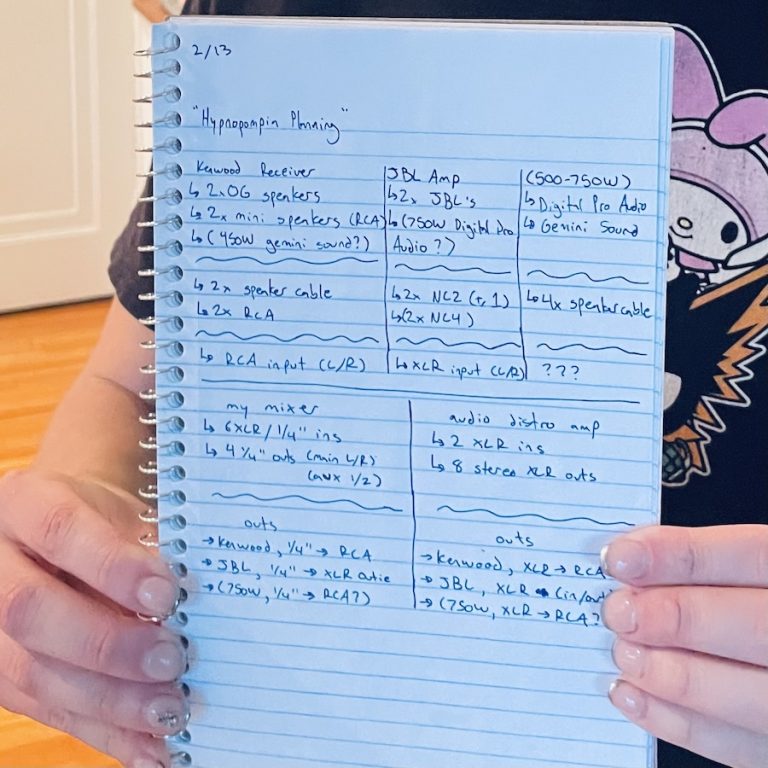 2/13
"Hypnopompin Planning"
Kenwood Receiver
↳ 2xOG speakers
↳ 2x mini speakers (RCA)
↳ (450W gemini sound?)
↳ 2x speaker cable
↳ 2x RCA
↳ RCA input (L/R)
JBL Amp
↳ 2x JBL's
↳ (750W Digital Pro
Audio?)
↳ 2x NL2 (tr 1)
↳ (2x NL4)
↳ XLR input (L/R)
(500-750W)
↳ Digital Pro Audio
↳ Gemini Sound
↳ 4x speaker cable
???
my mixer
↳ 6XLR/1/4" ins
↳ 4 1/4" outs (main L/R)
(aux 1/2)
outs
→ Kenwood, 1/4" → RCA
→ JBL, 1/4" → XLR
→ (750W, 1/4" → RCA?)
audio distro amp
↳ 2 XLR ins
↳ 8 stereo XLR outs
outs
→ Kenwood, XLR → RCA
→ JBL, XLR (in/out
→ (750W, XLR → RCA?